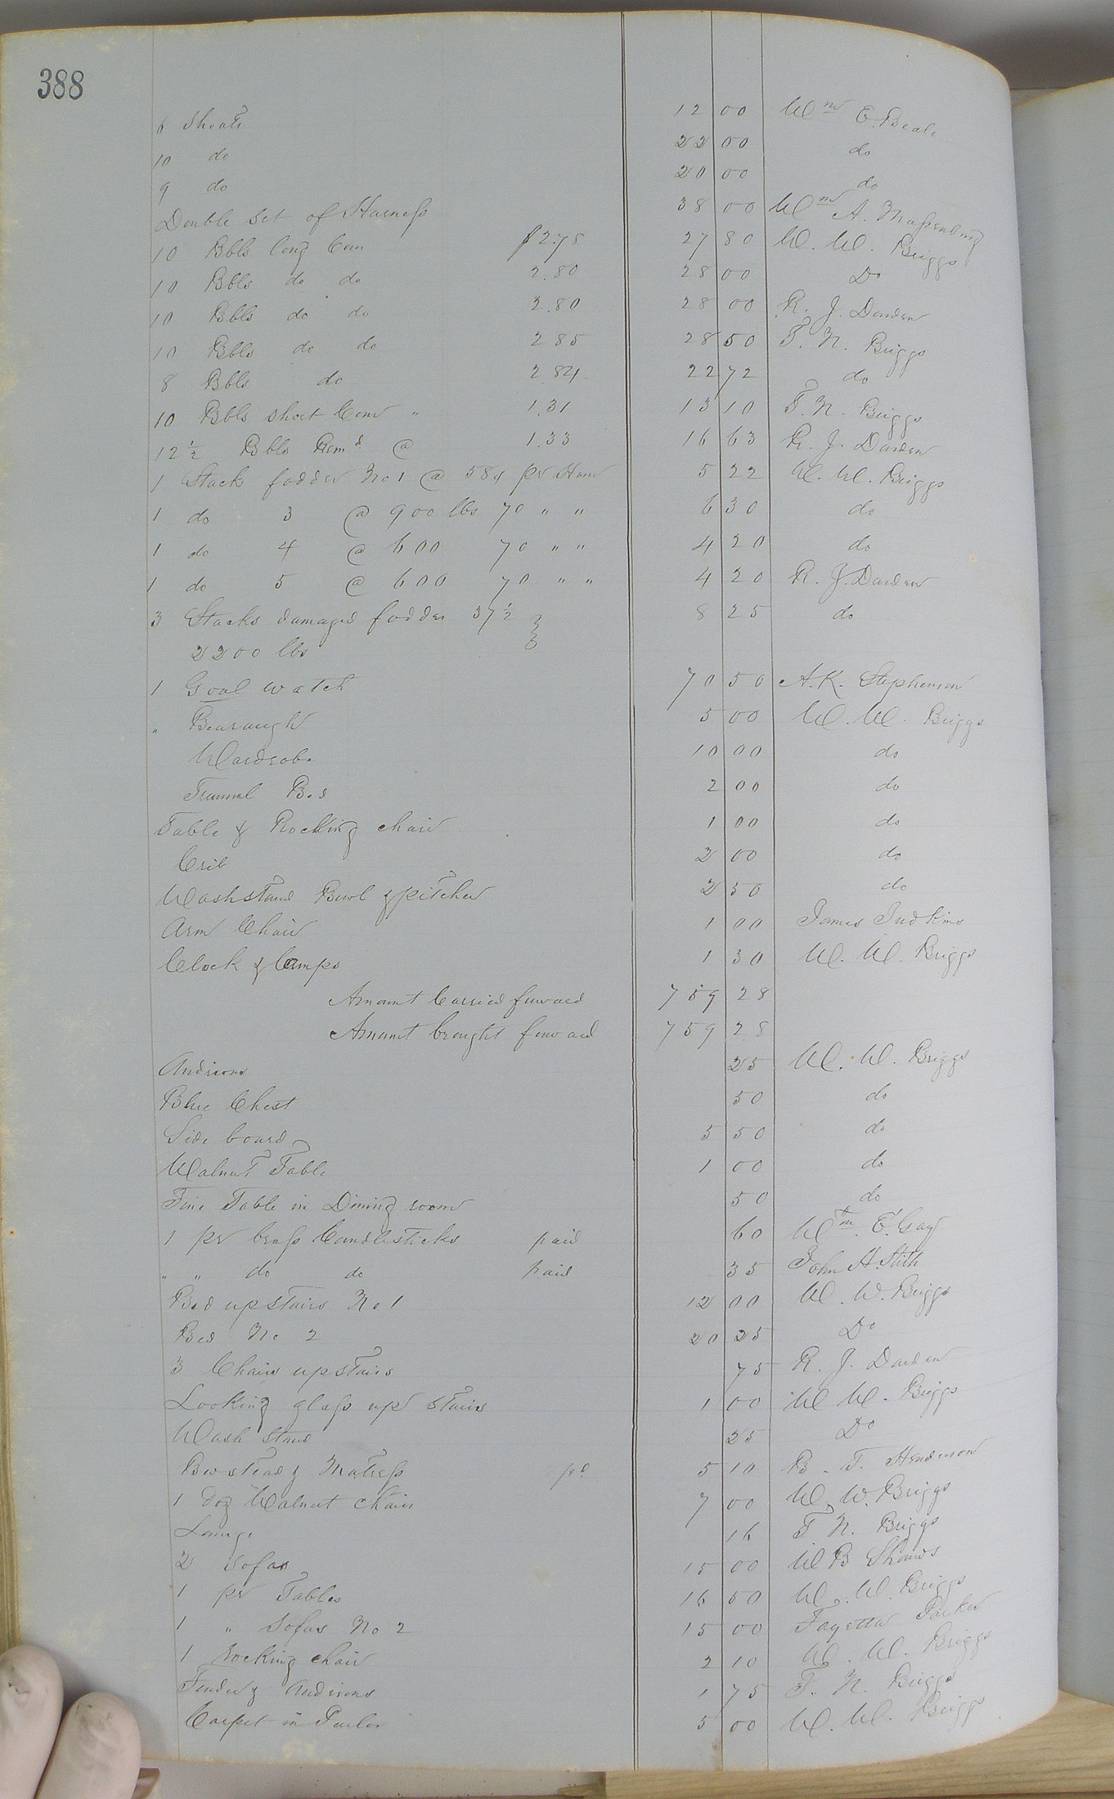 388
6 Shoats 12 00 Wm E. Beale
10 do 22 00 do
9 do 20 00 do
Double Set of Harness 38 00 Wm A. Massenburg
10 Bbls long Corn $2.78 27 80 W. W. Briggs
10 Bbls do do 2.80 28 00 Do
10 Bbls do do 2.80 28 00 R. J. Darden
10 Bbls do do 2 85 28 50 F. N. Briggs
8 Bbls do 2 84 22 72 do
10 Bbls short Corn " 1.31 13 10 F. N. Briggs
12 1/2 Bbls Remd @ 1.33 16 63 R. J. Darden
1 Stack fodder No 1 @ 58¢ pr Hun 5 22 W. W. Briggs
1 do 3 @ 900 lbs 70 " " 6 30 do
1 do 4 @ 600 70 " " 4 20 do
1 do 5 @ 600 70 " " 4 20 R. J. Darden
3 Stacks damaged fodder 37 1/2 8 25 do
2200 lbs
1 Goal watch 70 50 A. K. Stephenson
" Beaurough 5 00 W. W. Briggs
Wardrobe 10 00 do
Trunnel Bed 2 00 do
Table & Rocking chair 1 00 do
Crib 2 00 do
Washstand Bowl & pitcher 2 50 do
Arm Chair 1 00 James Judkins
Clock & Camps 1 30 W. W. Briggs
Amount Carried forward 759 28
Amount brought forward 759 28
Andirons 25 W. W. Briggs
Blue Chest 50 do
Side board 5 50 do
Walnut Table 1 00 do
Fine Table in Dining room 50 do
1 pr brass Candlesticks paid 60 Wm E. Gay
" " do do paid 35 John H. Stith
Bed upstairs No 1 12 00 W. W. Briggs
Bed No 2 20 25 Do
3 Chairs upstairs 75 R. J. Darden
Looking glass up stairs 1 00 W W. Briggs
Wash stand 25 Do
Bedstead & Matress pd 5 10 B. T. Henderson
1 doz Walnut chairs 7 00 W. W. Briggs
Lounge 16 F N. Briggs
2 Sofas 15 00 W B Shands
1 pr Tables 16 50 W. W. Briggs
1 " Sofas No 2 15 00 Fayette Parker
1 Rocking chair 2 10 W. W. Briggs
Fender & Andirons 1 75 F. N. Briggs
Carpet in Parlor 5 00 W. W. Briggs